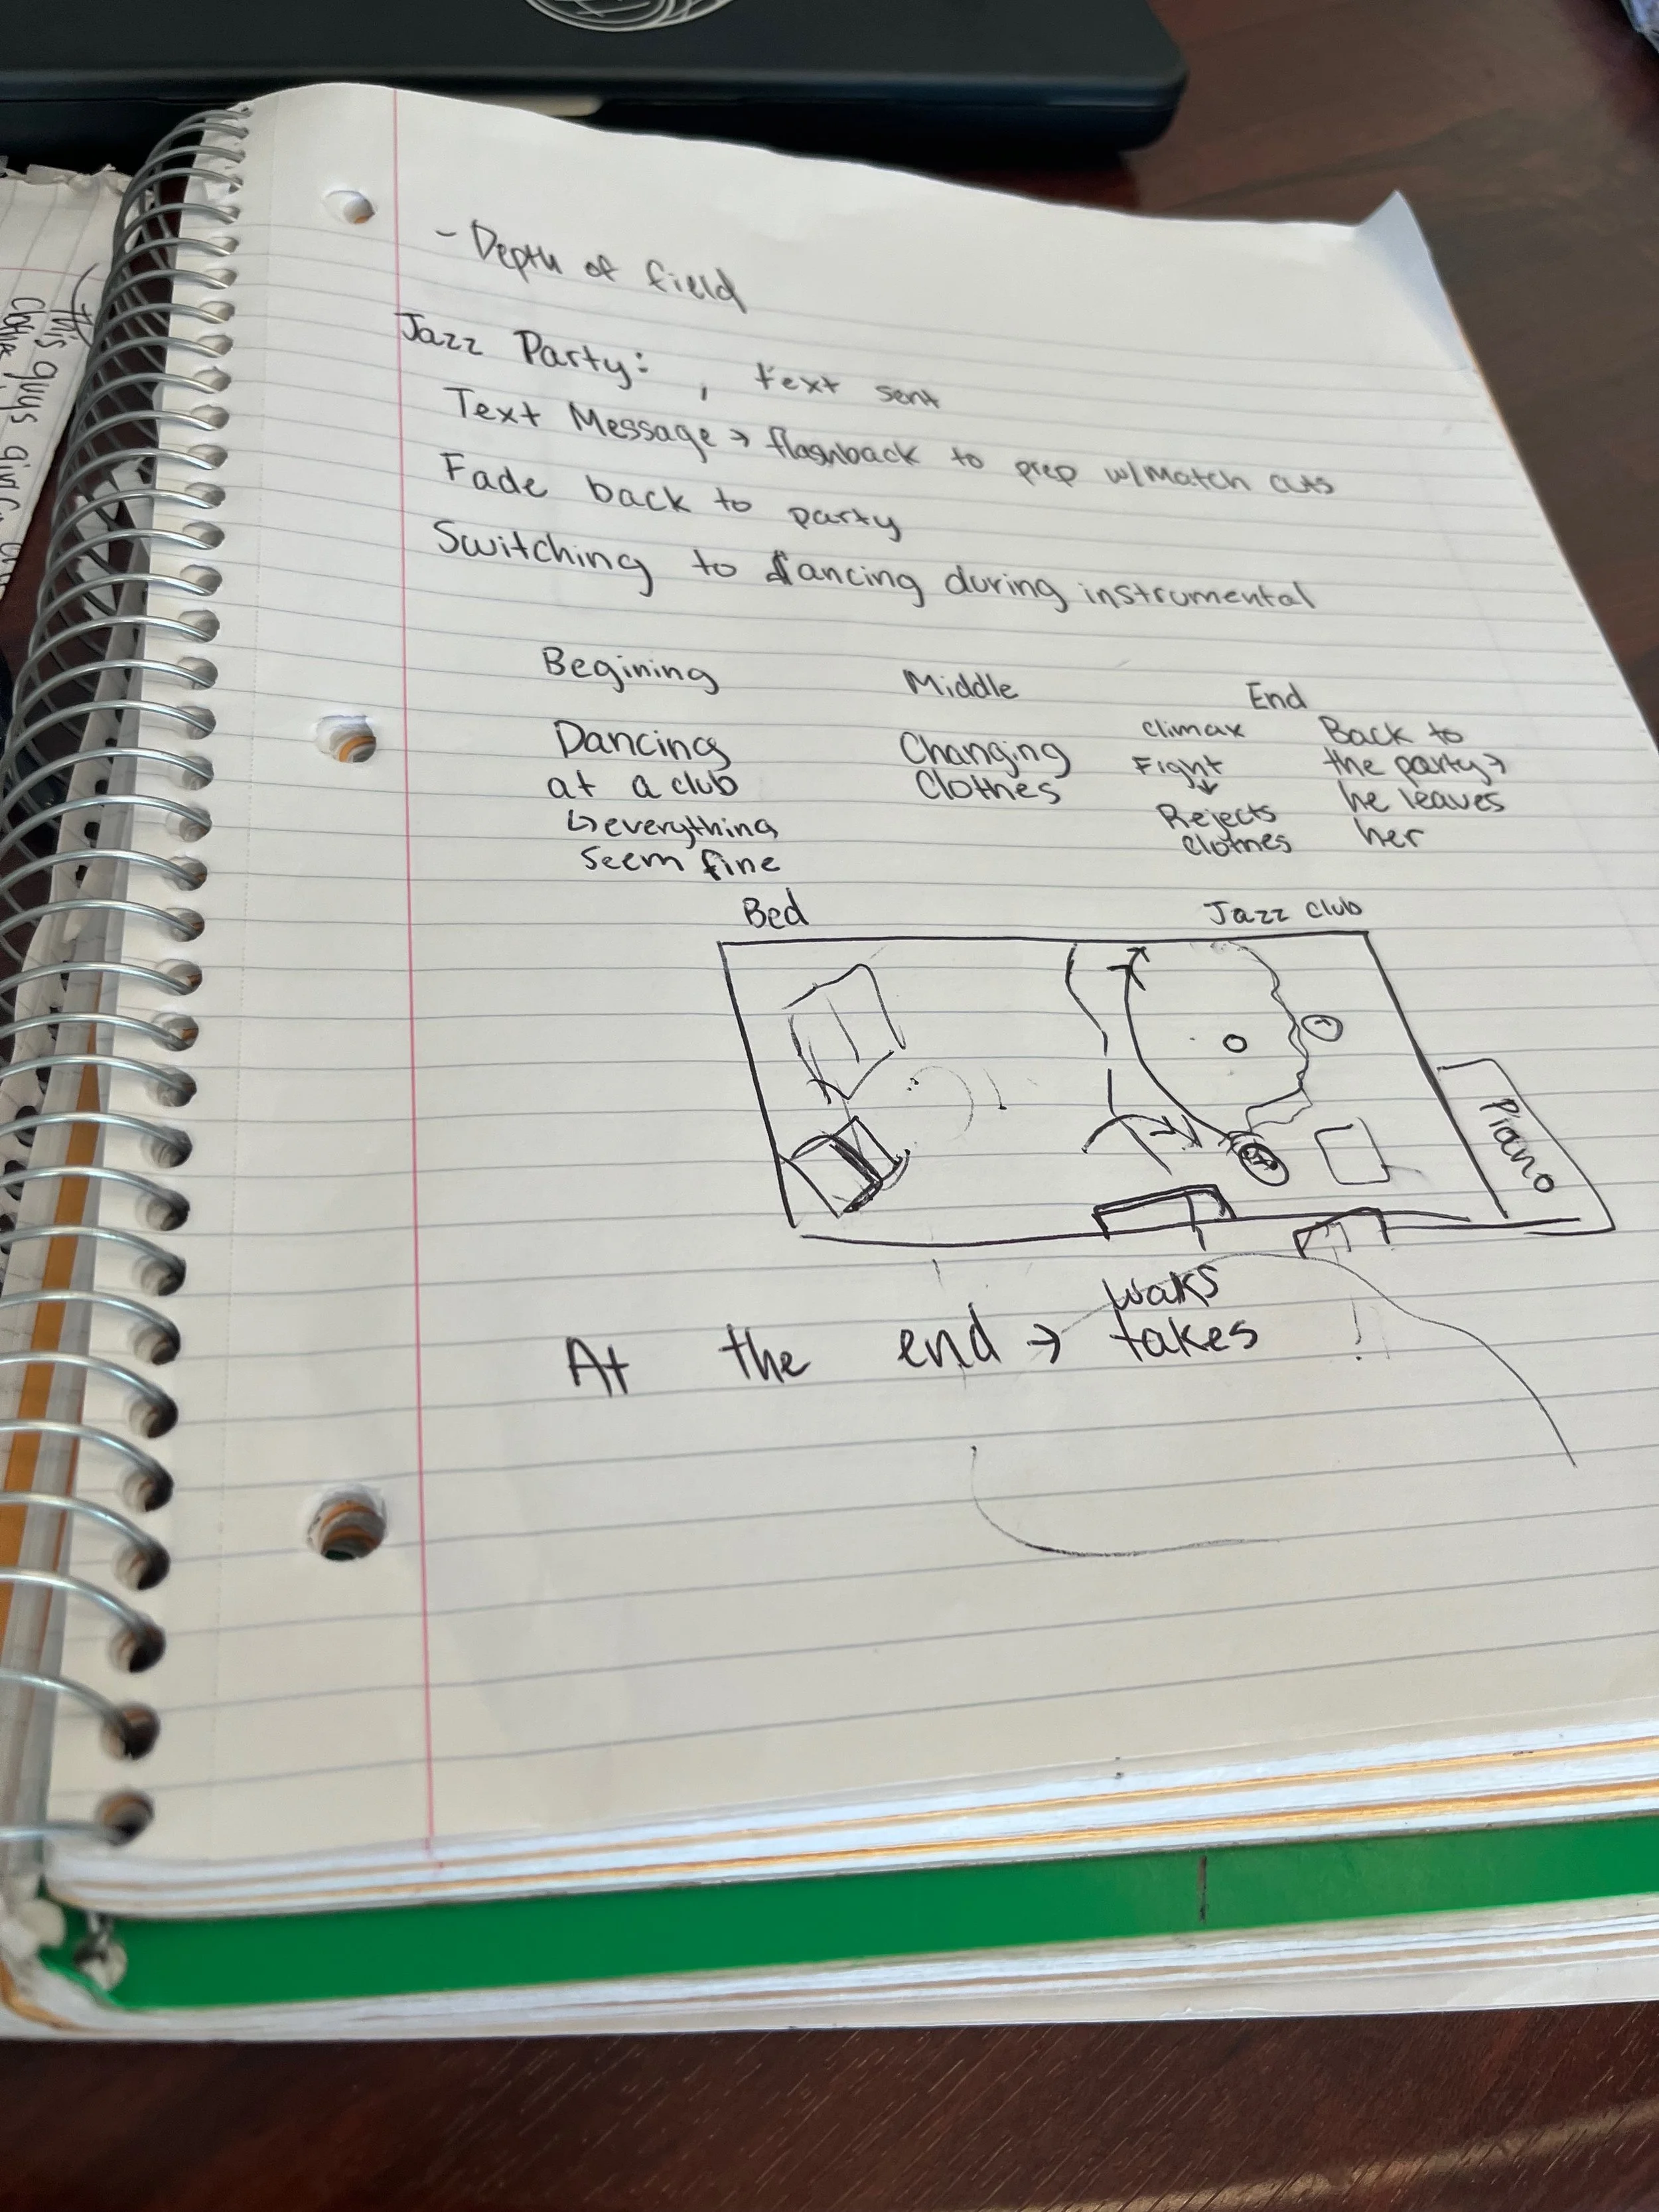 - Depth of field
Jazz Party: , text sent
Text Message → flashback to prep w/ Match cuts
Fade back to party
Switching to dancing during instrumental
Begining Middle End
Dancing at a club
↳ everything seem fine
Changing Clothes
Climax
Fight
↓
Rejects clothes
Back to the party → he leaves her
Bed Jazz club
Piano
waks
At the end → takes
this guys